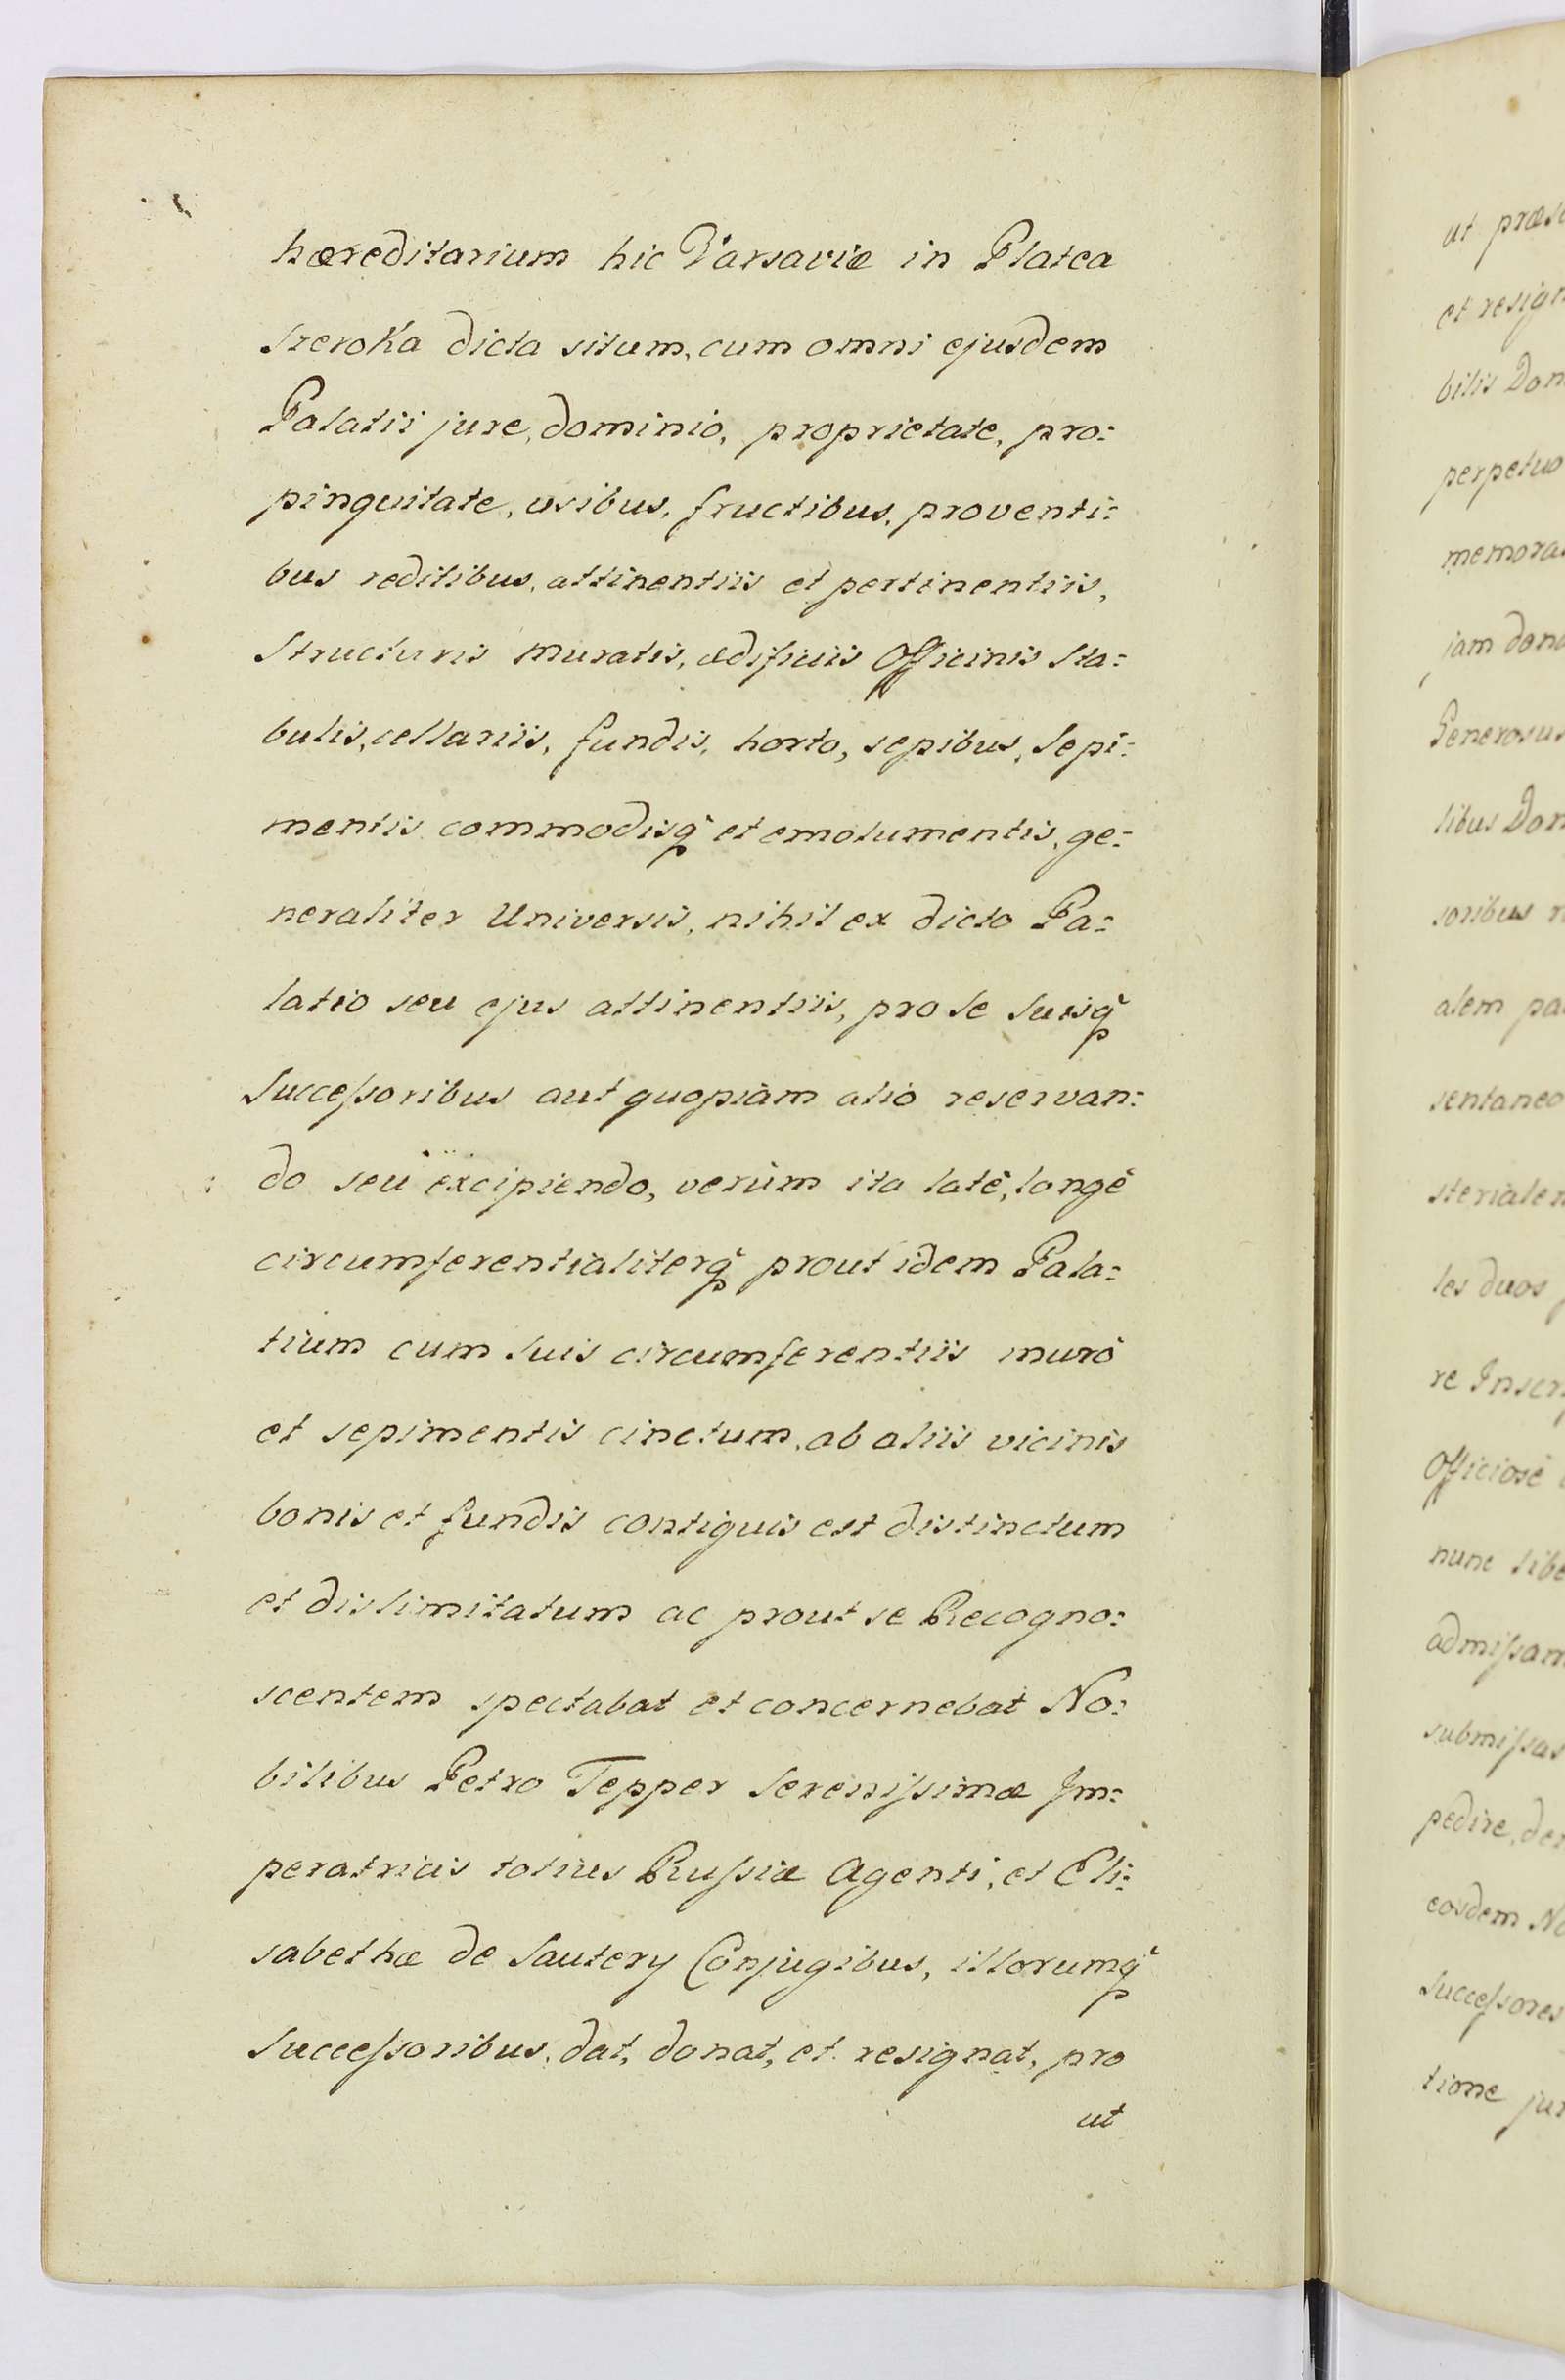 hæreditarium hic Varsaviæ in Platea
Szeroka dicta situm, cum omni ejusdem
Palatii jure, dominio, proprietate, pro:
pinquitate, usibus, fructibus, proventi:
bus reditibus, attinentiis et pertinentiis,
Structuris muratis, ædificiis Officinis sta:
bulis, cellariis, fundis, horto, sepibus, sepi:
mentis commodisq̃ et emolumentis, ge:
neraliter Universis, nihil ex dicto Pa:
latio seu ejus attinentiis, pro se suisq̃
Succeſsoribus aut quopiàm alio reservan:
do seu excipiendo, verùm ita latè, longè
circumferentialiterq̃ prout idem Pala:
tium cum suis circumferentiis murò
et sepimentis cinctum, ab aliis vicinis
bonis et fundis contiguis est distinctum
et dislimitatum ac prout se Recogno:
scentem spectabat et concernebat No:
bilibus Petro Tepper Sereniſsimæ Im:
peratricis totius Ruſsiæ Agenti, et Eli:
sabethæ de Sautery Conjugibus, illorumq̃
Succeſsoribus, dat, donat, et resignat, pro
ut
ut
et
bilis
perpetuo
jam
Generosus
libus
soribus
les duos
re
Officiosè
nunc
eosdem
Succeſsores
tione